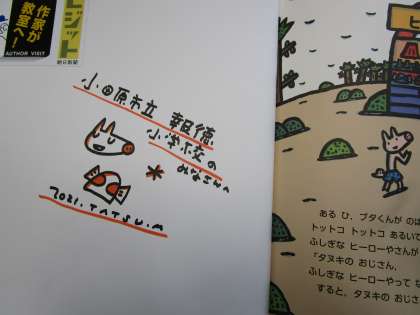 作家が
教室へ!
AUTHOR VISIT
ビジット
朝日新聞
小田原市立 報徳
小学校の
みなさんへ
2021. TATSU.M
ある ひ、ブタくんが のは
トットコ トットコ あるいて
ふしぎな ヒーローやさんが
「タヌキの おじさん、
ふしぎな ヒーローやって な
すると、タヌキの おじ